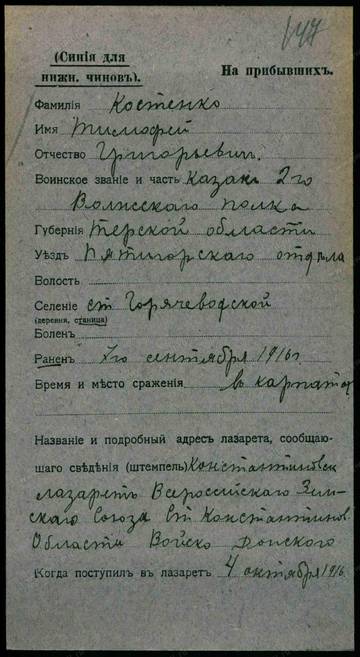 147
(Синія для
нижн. чиновъ).
На прибывшихъ.
Фамилія Костенко
Имя Тимофей
Отчество Григорьевич.
Воинское званіе и часть Казакъ 2го
Волгскаго полка
Губернія Терской области
Уѣздъ Пятигорскаго отдѣла
Волость
Селеніе ст Горячеводской
(деревня, станица)
Боленъ
Раненъ 7го сентября 1916 г.
Время и мѣсто сраженія въ карпатах
Названіе и подробный адресъ лазарета, сообщаю-
щаго свѣдѣнія (штемпель) Константиновск
лазаретъ Всероссійскаго Зем-
скаго Союза ст Константинов.
Области Войско Донского
Когда поступилъ въ лазаретъ 4 октября 1916